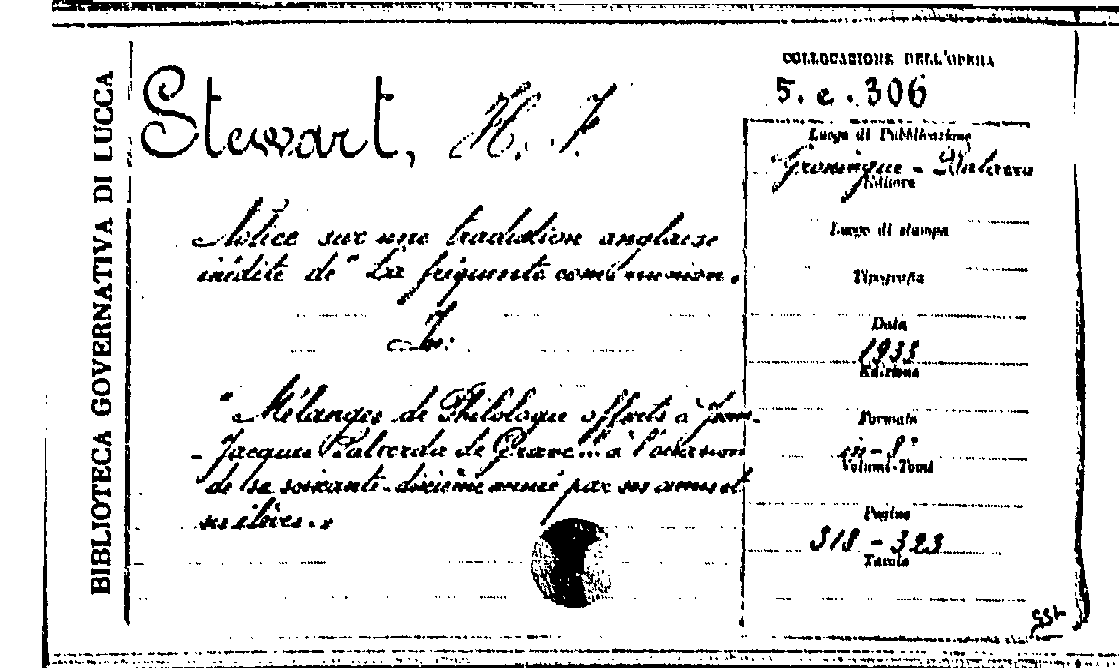 BIBLIOTECA GOVERNATIVA DI LUCCA
Stewart, H. F.
Notice sur une traduction anglaise
inédite de "La fréquente communion.
In:
"Mélanges de Philologie offerts à Jean-
-Jacques Salverda de Grave... à l'occasion
de sa soixante-dixième année par ses amis et
ses élèves."
COLLOCAZIONE DELL'OPERA
5. e. 306
Luogo di Pubblicazione
Groningue -
Editore
Luogo di stampa
Tipografia
Data
1933
Edizione
Formato
in-8°
Volumi-Tomi
Pagine
318 - 323
Tavole